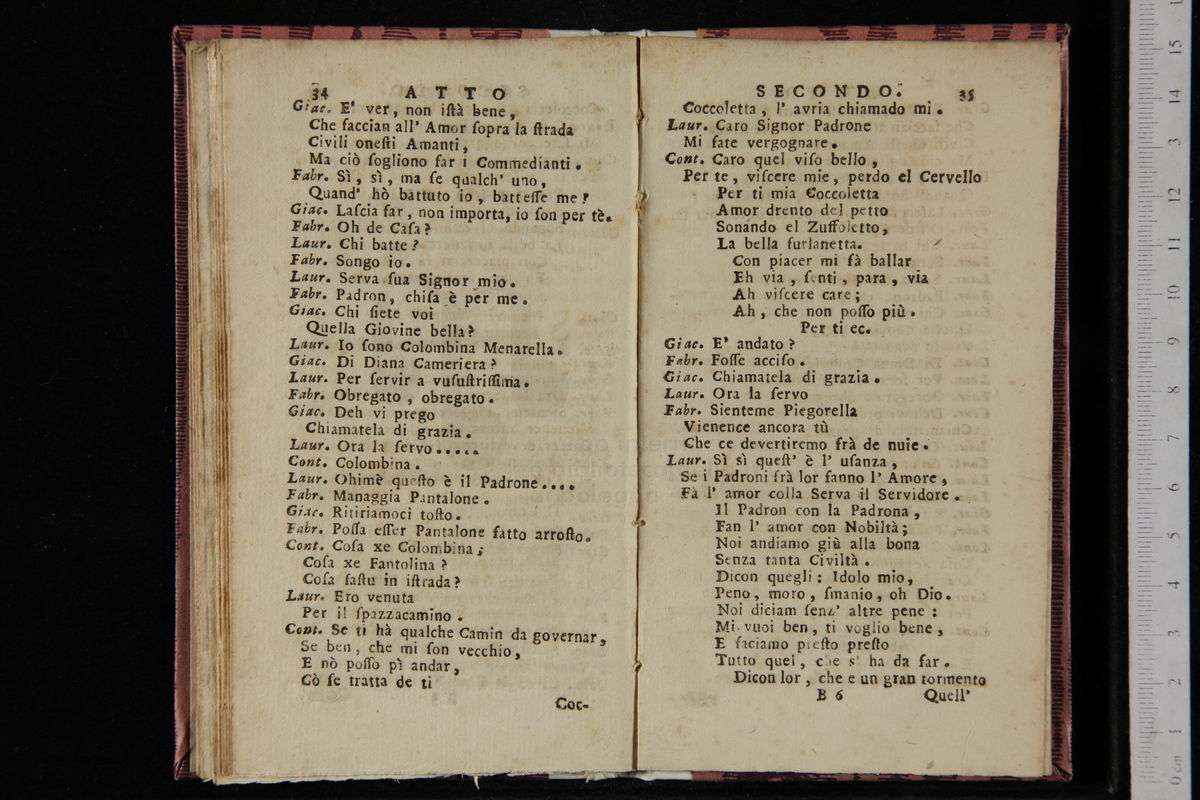 34 ATTO
Giac. E' ver, non iſtà bene,
Che faccian all' Amor ſopra la ſtrada
Civili oneſti Amanti,
Ma ciò ſogliono far i Commedianti.
Fabr. Sì, sì, ma ſe qualch' uno,
Quand' hò battuto io, batteſſe me?
Giac. Laſcia far, non importa, io ſon per tè.
Fabr. Oh de Caſa?
Laur. Chi batte?
Fabr. Songo io.
Laur. Serva ſua Signor mio.
Fabr. Padron, chiſa è per me.
Giac. Chi ſiete voi
Quella Giovine bella?
Laur. Io ſono Colombina Menarella.
Giac. Di Diana Cameriera?
Laur. Per ſervir a vuſuſtriſſima.
Fabr. Obregato, obregato.
Giac. Deh vi prego
Chiamatela di grazia.
Laur. Ora la ſervo.....
Cont. Colombina.
Laur. Ohimè queſto è il Padrone....
Fabr. Managgia Pantalone.
Giac. Ritiriamoci toſto.
Fabr. Poſſa eſſer Pantalone fatto arroſto.
Cont. Coſa xe Colombina;
Coſa xe Fantolina?
Coſa faſtu in iſtrada?
Laur. Ero venuta
Per il ſpazzacamino.
Cont. Se ti hà qualche Camin da governar,
Se ben, che mi ſon vecchio,
E nò poſſo pì andar,
Cò ſe tratta de ti
Coc-
SECONDO. 35
Coccoletta, l' avria chiamado mi.
Laur. Caro Signor Padrone
Mi fate vergognare.
Cont. Caro quel viſo bello,
Per te, viſcere mie, perdo el Cervello
Per ti mia Coccoletta
Amor drento del petto
Sonando el Zuffoletto,
La bella furlanetta.
Con piacer mi fà ballar
Eh via, ſenti, para, via
Ah viſcere care;
Ah, che non poſſo più.
Per ti ec.
Giac. E' andato?
Fabr. Foſſe acciſo.
Giac. Chiamatela di grazia.
Laur. Ora la ſervo
Fabr. Sienteme Piegorella
Vienence ancora tù
Che ce devertiremo frà de nuie.
Laur. Sì sì queſt' è l' uſanza,
Se i Padroni frà lor fanno l' Amore,
Fà l' amor colla Serva il Servidore.
Il Padron con la Padrona,
Fan l' amor con Nobiltà;
Noi andiamo giù alla bona
Senza tanta Civiltà.
Dicon quegli: Idolo mio,
Peno, moro, ſmanio, oh Dio.
Noi diciam ſenz' altre pene:
Mi vuoi ben, ti voglio bene,
E faciamo preſto preſto
Tutto quel, che s' ha da far.
Dicon lor, che e un gran tormento
B 6 Quell'
15
14
13
12
11
10
9
8
7
6
5
4
3
2
1
0 cm